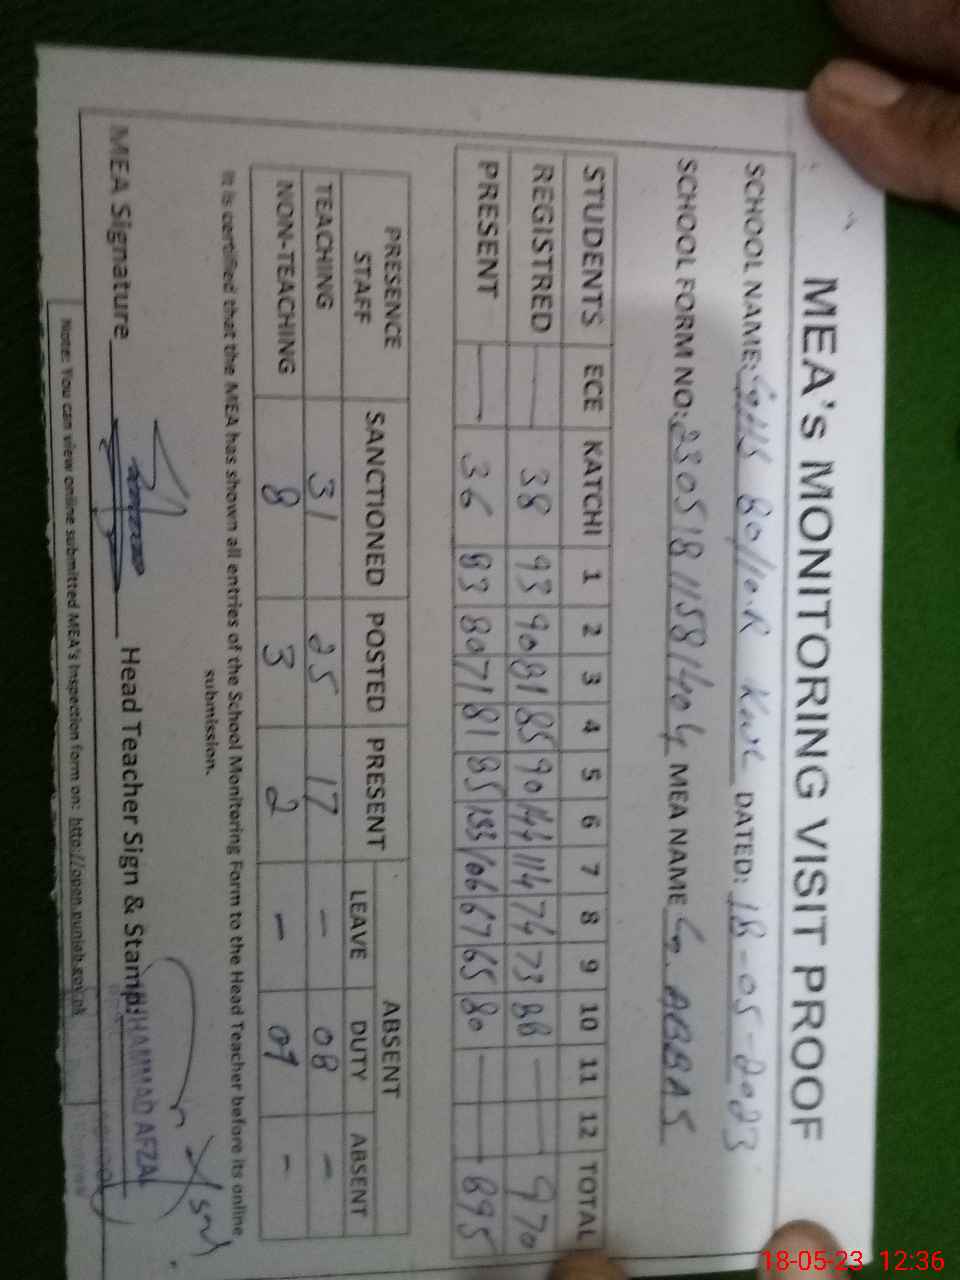 MEA's MONITORING VISIT PROOF
SCHOOL NAME: GHS 80/10.R KWL DATED: 18-05-2023
SCHOOL FORM NO: 23051811581404 MEA NAME G. ABBAS
STUDENTS ECE KATCHI 1 2 3 4 5 6 7 8 9 10 11 12 TOTAL
REGISTRED — 38 93 90 81 85 90 144 114 74 73 88 — 970
PRESENT — 36 83 80 71 81 85 133 106 67 65 80 — 895
PRESENCE STAFF SANCTIONED POSTED PRESENT ABSENT
LEAVE DUTY ABSENT
TEACHING 31 25 17 - 08 -
NON-TEACHING 8 3 2 - 01 -
It is certified that the MEA has shown all entries of the School Monitoring Form to the Head Teacher before its online
submission.
MEA Signature Head Teacher Sign & Stamp: MUHAMMAD AFZAL
Note: You can view online submitted MEA's Inspection form on: http://open.punjab.gov.pk
18-05-23 12:36